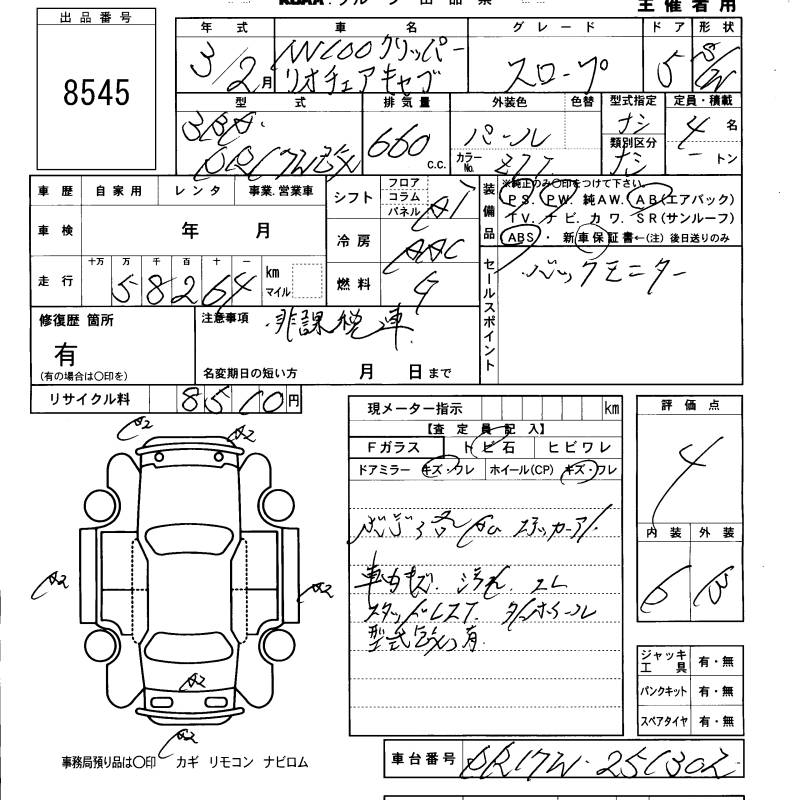 出品番号
8545
主催者用
年式 車名 グレード ドア 形状
3/2月 NV100クリッパー リオチェアキャブ スロープ 5 5/W
型式 排気量 外装色 色替 型式指定 定員・積載
3BA- 660 c.c. パール ナシ 4名
DR17W改 カラーNo. 類別区分 ナシ ートン
車歴 自家用 レンタ 事業.営業車
車検 年 月
走行 十万 万 千 百 十 一 km マイル
58264
シフト フロア コラム パネル AT
冷房 AAC
燃料 G
装備品
※純正のみ〇印をつけて下さい。
PS. PW. 純AW. AB(エアバック)
TV. ナビ. カワ. SR(サンルーフ)
ABS・ 新車保証書←(注) 後日送りのみ
セールスポイント
バックモニター
修復歴 箇所
有
(有の場合は〇印を)
注意事項 非課税車
名変期日の短い方 月 日まで
リサイクル料 8510円
現メーター指示 km
【査定員記入】
Fガラス トビ石 ヒビワレ
ドアミラー キズ・ワレ ホイール(CP) キズ・ワレ
車内キズ. 汚れ. コレ
型式改 有
評価点
4
内装 外装
6 B
ジャッキ工具 有・無
パンクキット 有・無
スペアタイヤ 有・無
A2
A2
A2
A2
A2
A2
事務局預り品は〇印 カギ リモコン ナビロム
車台番号 DR17W-251302